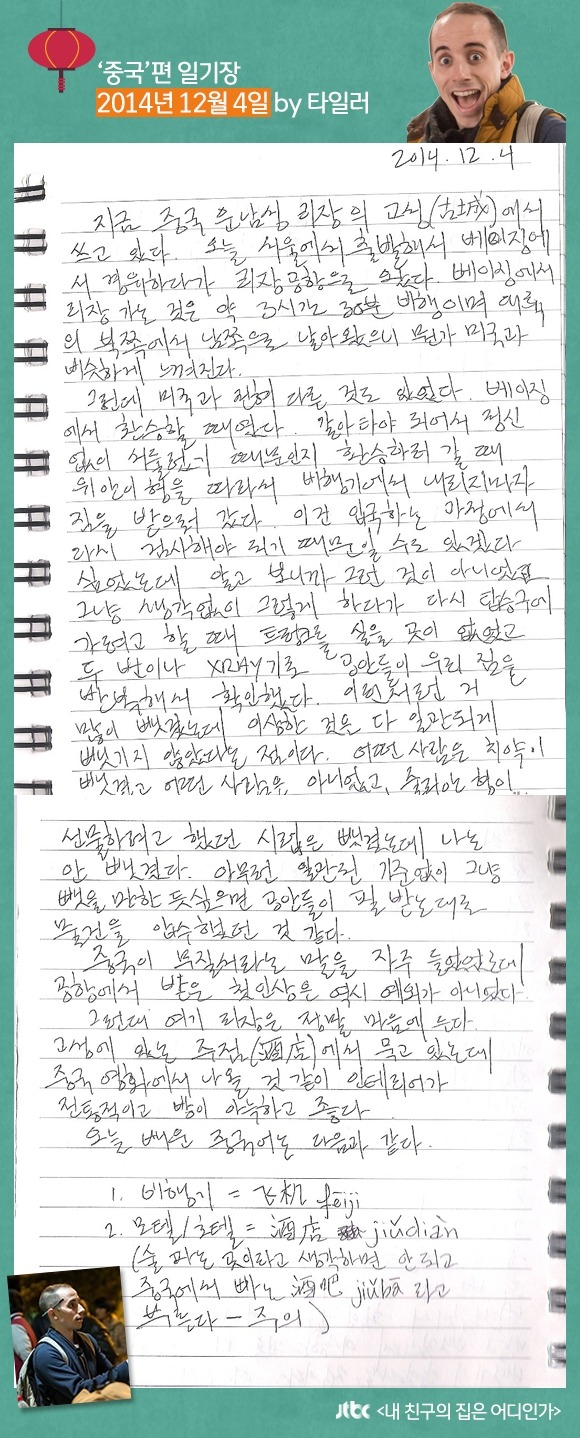 ‘중국’편 일기장
2014년 12월 4일 by 타일러
2014. 12. 4
지금 중국 운남성 리장의 고성(古城)에서
쓰고 있다. 오늘 서울에서 출발해서 베이징에
서 경유하다가 리장공항으로 왔다. 베이징에서
리장 가는 것은 약 3시간 30분 비행이며 대륙
의 북쪽에서 남쪽으로 날아왔으니 뭔가 미국과
비슷하게 느껴진다.
그런데 미국과 전혀 다른 것도 있었다. 베이징
에서 환승할 때였다. 갈아타야 되어서 정신
없이 서둘렀기 때문인지 환승하러 갈 때
위안이 형을 따라서 비행기에서 내리자마자
짐을 받으러 갔다. 이건 입국하는 과정에서
다시 검사해야 되기 때문일 수도 있겠다
싶었는데 알고 보니까 그런 것이 아니었고
그냥 생각없이 그렇게 하다가 다시 탑승구에
가려고 할 때 트렁크를 실을 곳이 없었고
두 번이나 XRAY기로 공안들이 우리 짐을
반복해서 확인했다. 이런저런 거
많이 뺏겼는데 이상한 것은 다 일관되게
뺏기지 않았다는 점이다. 어떤 사람은 치약이
뺏겼고 어떤 사람은 아니었고, 줄리안 형이
선물하려고 했던 시럽은 뺏겼는데 나는
안 뺏겼다. 아무런 일관된 기준없이 그냥
뺏을 만한 듯싶으면 공안들이 필 받는대로
물건을 압수했던 것 같다.
중국이 무질서라는 말을 자주 들었었는데
공항에서 받은 첫인상은 역시 예외가 아니었다.
그런데 여기 리장은 정말 마음에 든다.
고성에 있는 주점(酒店)에서 묵고 있는데
중국 영화에서 나올 것 같이 인테리어가
전통적이고 방이 아늑하고 좋다.
오늘 배운 중국어는 다음과 같다.
1. 비행기 = 飞机 fēijī
2. 모텔/호텔 = 酒店 jiǔdiàn
(술 파는 곳이라고 생각하면 안 되고
중국에서 빠는 酒吧 jiǔbā 라고
부른다 - 주의)
jtbc <내 친구의 집은 어디인가>